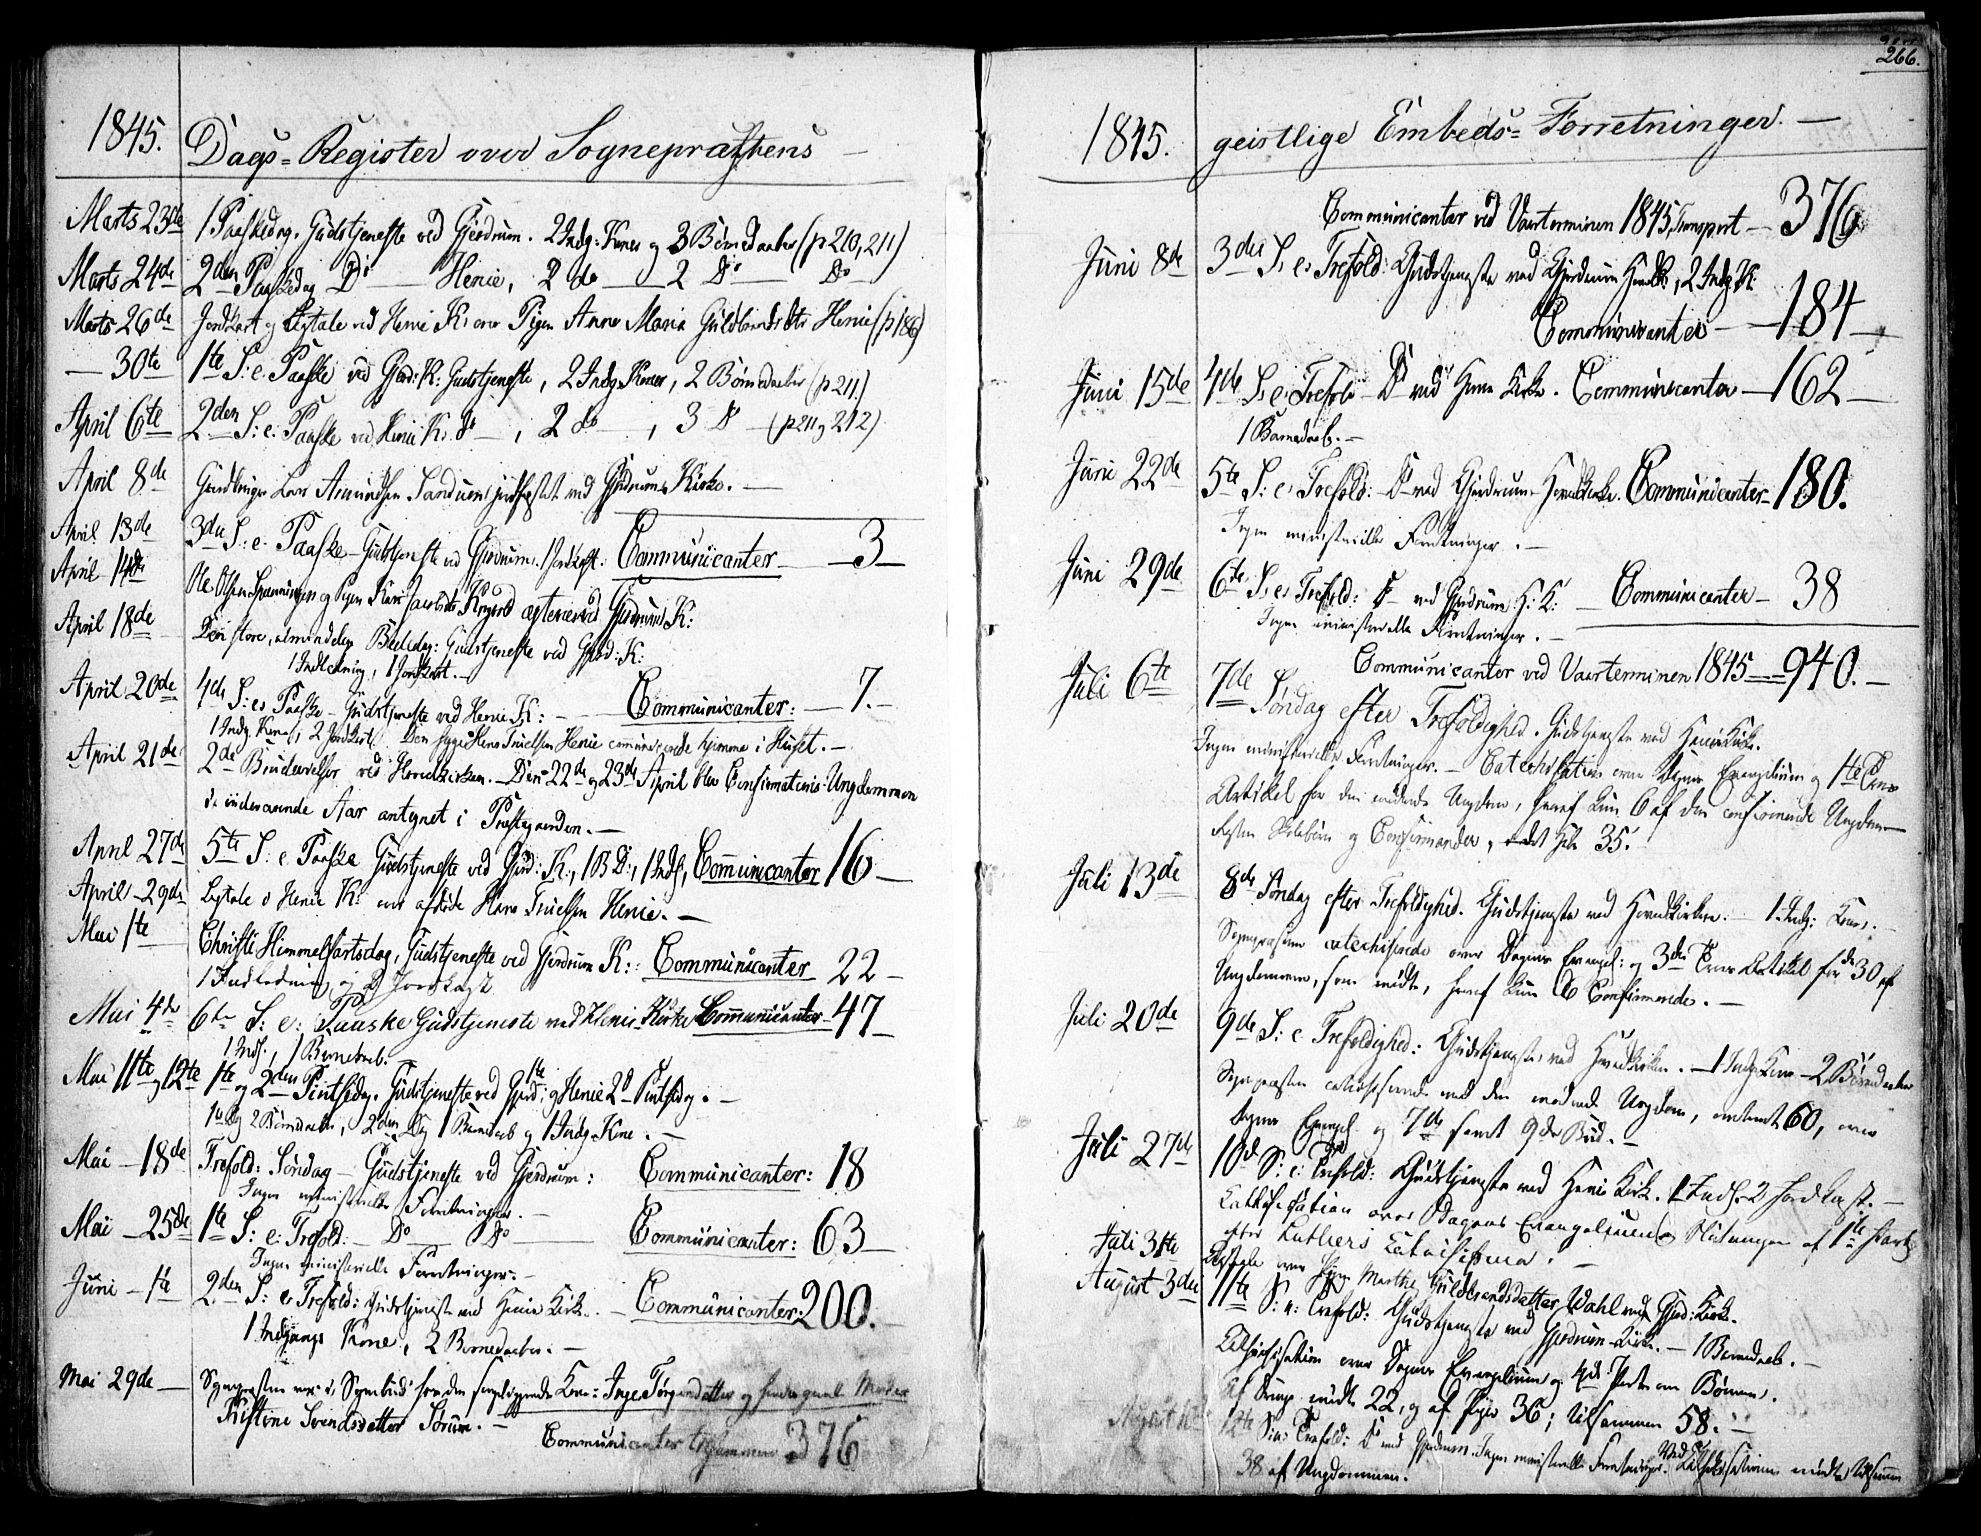 1845.
Dags-Register over Sognepræstens
Marts 23de 1 Paaskedag. Gudstjeneste ved Gjerdrum. 2 Indg: Koner og 3 Børnedaaber (p 210, 211)
Marts 24de 2den Paaskedag Do Henie, 2 do 2 Do Do
Marts 26de Jordkast og Ligtale ved Henie K: over Pigen Anne Maria Guldbrandsdtr Henie (p 186)
— 30te 1te S: e: Paaske ved Gjerd: K: Gudstjeneste, 2 Indg. Koner, 2 Børnedaaber (p 211.)
April 6te 2den S: e: Paaske ved Henie K: do, 2 do, 3 Do (p 211 og 212)
April 8de Lars Amundsen jordfæstet ved Gjerdrums Kirke.
April 13de 3die S: e: Paaske Gudstjeneste ved Gjerdrum. 1 Jordkast. Communicanter 3
April 14de Ole Olsen og Pigen Kari Jacobsdtr ægteviet ved Gjerdrum K:
April 18de Den store, almindelige Bededag: Gudstjeneste ved Gjerd: K:
1 Indledning, 1 Jordkast.
April 20de 4de S: e: Paaske Gudstjeneste ved Henie K: Communicanter: 7.
1 Indg. Kone, 2 Jordkast. Den syge Hans Truelsen Henie comunicerede hjemme i Huset.
April 21de 2de ved Hovedkirken. Den 22de og 23de April blev Confirmations-Ungdommen
i indeværende Aar antegnet i Præstegaarden.
April 27de 5te S: e: Paaske Gudstjeneste ved Gjerd: K:, 1 B D:, 1 Indl, Communicanter 16
April 29de Ligtale i Henie K: over afdøde Hans Truelsen Henie.
Mai 1te Christi Himmelfartsdag, Gudstjeneste ved Gjerdrum K: Communicanter 22
1 Indledning og 2 Jordkast
Mai 4de 6te S: e: Paaske Gudstjeneste ved Henie Kirke Communicanter 47
1 Indl., 1 Barnedaab.
Mai 11te og 12te 1te og 2den Pintsedag. Gudstjeneste ved Gjerd: 1te og Henie 2d Pintsedag.
1te Dag 2 Børnedaab, 2den Dag 1 Barnedaab og 1 Indg. Kone.
Mai 18de Trefold: Søndag Gudstjeneste ved Gjerdrum: Communicanter: 18
Ingen ministerielle Forretninger.
Mai 25de 1te S: e: Trefold: Do Do Communicanter: 63
Ingen ministerielle Forretninger.
Juni 1te 2den S: e: Trefold: Gudstjeneste ved Henie Kirke. Communicanter: 200.
1 Indgangs Kone, 2 Børnedaaber.
Mai 29de Sognepræsten var i Sognebud hos den Kone: Inge og hendes gamle Moder
Kistine Svendsdatter Sørum.
Communicanter tilsammen 376
266.
1845. geistlige Embeds-Forretninger.
Communicanter ved Vaarterminen 1845, Transport 376
Juni 8de 3die S: e: Trefold: Gudstjeneste ved Gjerdrum Hovedk, 2 Indg. K:
Communicanter 184
Juni 15de 4de S: e: Trefold Do ved Henie Kirke. Communicanter 162
1 Barnedaab.
Juni 22de 5te S: e: Trefold: Do ved Gjerdrum Hovedkirke. Communicanter 180.
Ingen ministerielle Forretninger.
Juni 29de 6te S: e: Trefold: Do ved Gjerdrum H: K: Communicanter 38
Ingen ministerielle Forretninger.
Communicanter ved Vaarterminen 1845 940.
Juli 6te 7de Søndag efter Trefoldighed. Gudstjeneste ved Henie Kirke.
Ingen ministerielle Forretninger. Catechisation over Dagens Evangelium og 1te Troes
Artikel for den mødende Ungdom, hvoraf kun 6 af den confirmerede Ungdom
Skolebørn og Confirmander, i det hele 35.
Juli 13de 8de Søndag efter Trefoldighed. Gudstjeneste ved Hovedkirken. 1 Indg: Kone.
Sognepræsten catechiserede over Dagens Evangel: og 3die Troes Artikel for de 30 af
Ungdommen, som mødte, hvoraf kun 6 Confirmerede.
Juli 20de 9de S: e: Trefoldighed: Gudstjeneste ved Hovedkirken. 1 Indg. Kone 2 Børnedaaber
Sognepræsten catechiserede med den mødende Ungdom, omtrent 60, over
Dagens Evangel. og 7de samt 9de Bud.
Juli 27de 10de S: e: Trefold: Gudstjeneste ved Henie Kirke. 1 Indl. 2 Jordkast.
Catechisation over Dagens Evangelium og Slutningen af 1te Part
efter Luthers Catechisme.
Juli 31te Ligtale over Pigen Marthe Guldbrandsdatter Wahl ved Gjerd: Kirke.
August 3die 11te S: e: Trefold: Gudstjeneste ved Gjerdrum Kirke. 1 Barnedaab.
Catechisation over Dagens Evangelium og 4de Part om Bønnen.
Af Drenge mødte 22, og af Piger 36; tilsammen 58.
August 10de 12te S: e: Trefold: Do ved Gjerdrum. Ingen ministerielle Forretninger. Ved Catechisationen mødte tilsammen
38 af Ungdommen.